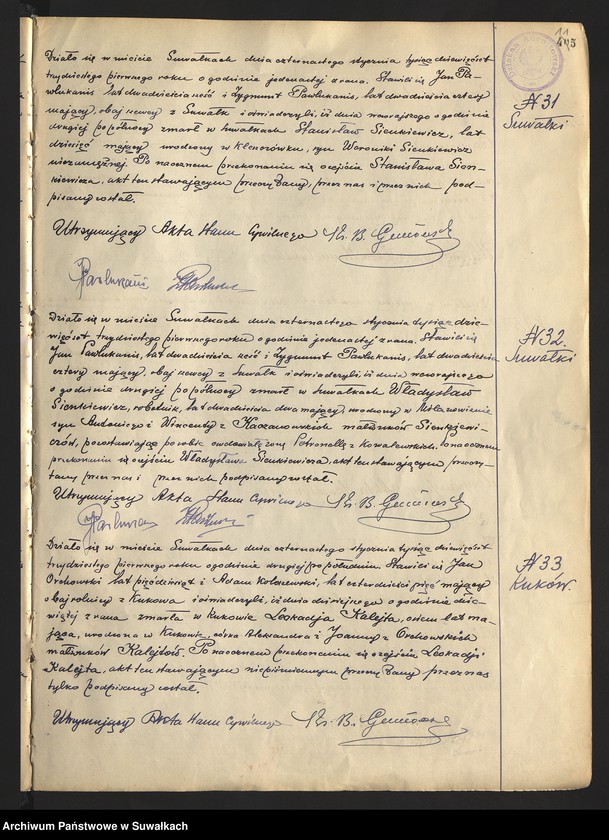 11
Działo się w mieście Suwałkach dnia czternastego stycznia tysiąc dziewięćset
trzydziestego pierwszego roku o godzinie jedenastej z rana. Stawili się Jan Pa-
wlukanis, lat dwadzieścia sześć i Zygmunt Pawlukanis, lat dwadzieścia cztery
mający, obaj szewcy z Suwałk i oświadczyli, iż dnia wczorajszego o godzinie
drugiej po północy zmarł w Suwałkach Stanisław Sienkiewicz, lat
dziesięć mający urodzony w Kleszczówku, syn Weroniki Sienkiewicz
niezamężnej. Po naocznem przekonaniu się o zejściu Stanisława Sien-
kiewicza, akt ten stawającym przeczytany, przez nas i przez nich pod-
pisany został.
Utrzymujący Akta Stanu Cywilnego Ks. B.
№ 31
Suwałki
Działo się w mieście Suwałkach dnia czternastego stycznia tysiąc dzie-
więćset trzydziestego pierwszego roku o godzinie jedenastej z rana. Stawili się
Jan Pawlukanis, lat dwadzieścia sześć i Zygmunt Pawlukanis, lat dwadzieścia
cztery mający, obaj szewcy z Suwałk i oświadczyli iż dnia wczorajszego
o godzinie drugiej po północy zmarł w Suwałkach Władysław
Sienkiewicz, robotnik, lat dwadzieścia dwa mający, urodzony w
syn Antoniego i Wincenty z Kaczanowskich małżonków Sienkiewi-
czów, pozostawiając po sobie owdowiałą żonę Petronellę z Kowalewskich. Po naocznem
przekonaniu się o zejściu Władysława Sienkiewicza, akt ten stawającym przeczy-
tany przez nas i przez nich podpisany został.
Utrzymujący Akta Stanu Cywilnego Ks. B.
№ 32.
Suwałki
Działo się w mieście Suwałkach dnia czternastego stycznia tysiąc dziewięćset
trzydziestego pierwszego roku o godzinie drugiej po południu. Stawili się Jan
Orchowski lat pięćdziesiąt i Adam lat czterdzieści pięć mający
obaj rolnicy z Kukowa i oświadczyli, iż dnia dzisiejszego o godzinie dzie-
wiątej z rana zmarła w Kukowie Leokadja Kalejta, osiem lat ma-
jąca, urodzona w Kukowie, córka Aleksandra i Joanny z Orchowskich
małżonków Kalejtów. Po naocznem przekonaniu się o zejściu Leokadji
Kalejta, akt ten stawającym niepiśmiennym przeczytany przez nas
tylko podpisany został.
Utrzymujący Akta Stanu Cywilnego Ks. B.
№ 33
Kuków.
Archiwum Państwowe w Suwałkach